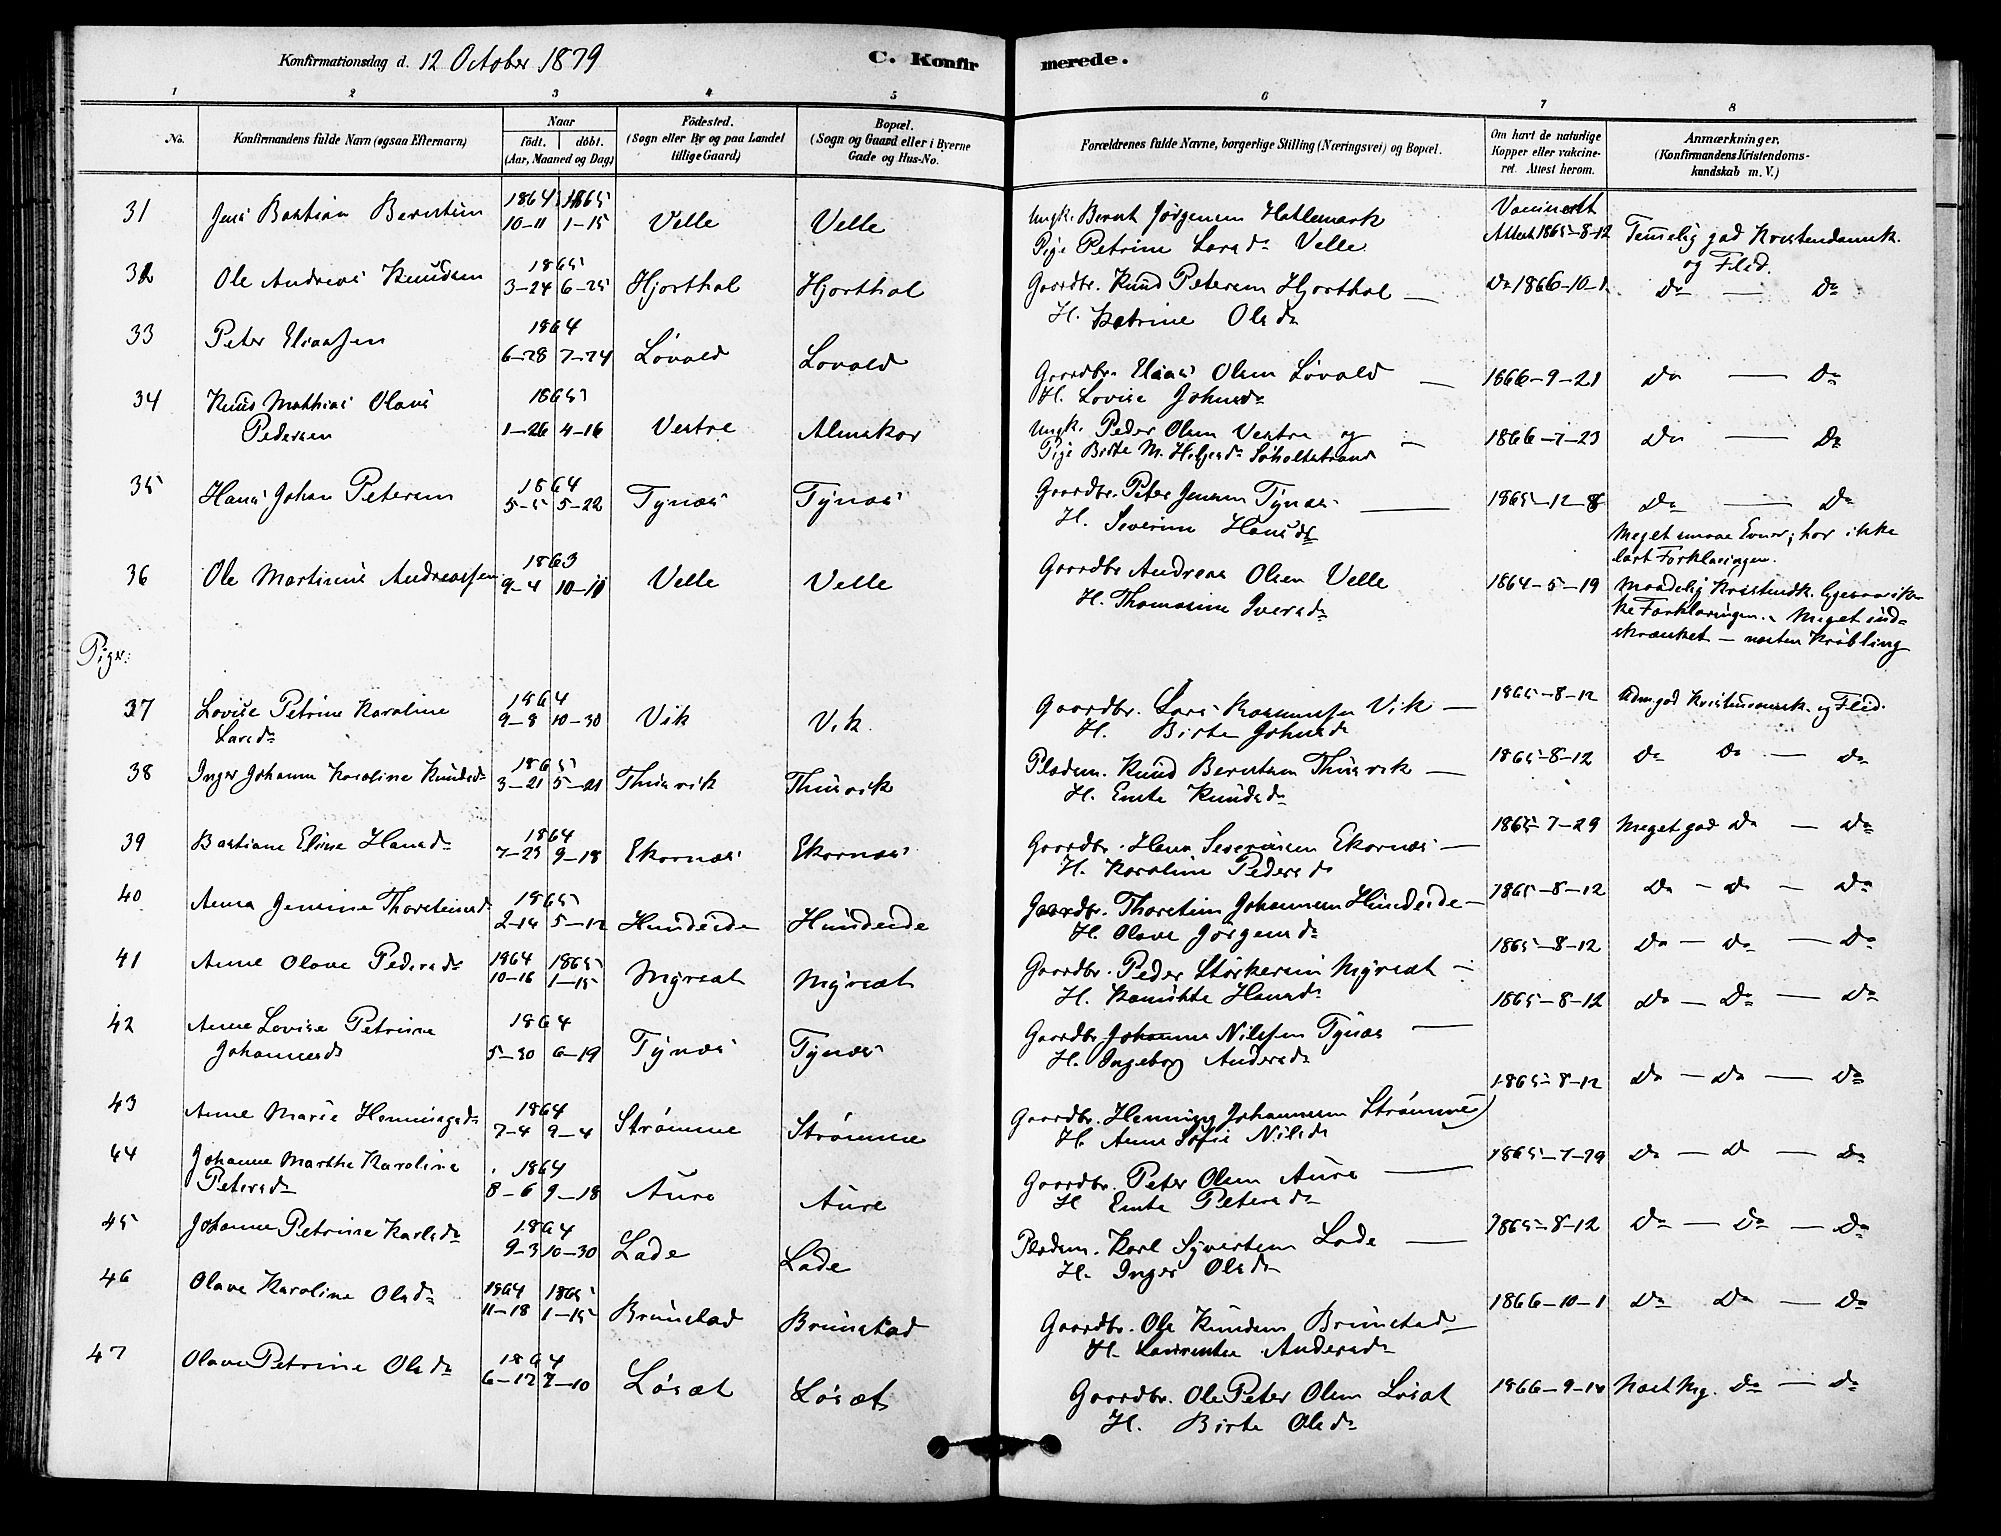 Konfirmationsdag d. 12 October 1879
C. Konfirmerede.
1 2 3 4 5 6 7 8
No.
Konfirmandens fulde Navn (ogsaa Efternavn)
Naar
födt. döbt.
(Aar, Maaned og Dag)
Födested.
(Sogn eller By og paa Landet tillige Gaard)
Bopæl.
(Sogn og Gaard eller i Byerne Gade og Hus-No.
Forældrenes fulde Navne, borgerlige Stilling (Næringsvei) og Bopæl.
Om havt de naturlige Kopper eller vakcineret. Attest herom.
Anmærkninger.
(Konfirmandens Kristendomskundskab m. V.)
31 Jens Bastian Berntsen 1864 10-11 1865 1-15 Velle Velle Ungk. Bernt Jörgensen Hatlemark Vaccinert
Pige Petrine Larsdr Velle Attest 1865-8-12 Temelig god Kristendomsk. og Flid.
32 Ole Andreas Knudsen 1865 3-24 6-25 Hjorthol Hjorthol Gaardbr. Knud Petersen Hjorthol — Do 1866-10-1 Do — Do
H. Katrine Olsdr
33 Peter Eliassen 1864 6-28 7-24 Lövold Lovold Gaardbr. Elias Olsen Lövold — 1866-9-21 Do — Do
H. Lovise Johnsdr
34 Knud Mathias Olaus 1865 1-26 4-16 Vestre Almskor Ungk. Peder Olsen Vestre og — 1866-7-23 Do — Do
Pedersen Pige Birte M. Söholtstrand
35 Hans Johan Petersen 1864 5-5 5-22 Tynæs Tynæs Gaardbr. Peter Jensen Tynæs — 1865-12-8 Do — Do
H. Severine Hansdr Meget smaa Evner; har ikke
lært Forklaringen.
36 Ole Martinus Andreassen 1863 9-4 10-11 Velle Velle Gaardbr Andreas Olsen Velle 1864-5-19 Maadelig Kristendk.
H. Thomasine Iversdr Forklaringen. Meget ind-
skrænket — næsten Kröbling
Piger:
37 Lovise Petrine Karoline 1864 9-8 10-30 Vik Vik. Gaardbr. Lars Rasmussen Vik — 1865-8-12 god Kristendomsk. og Flid.
Larsdr H. Birte Johnsdr
38 Inger Johanne Karoline Knudsdr 1865 3-21 5-21 Thusvik Thusvik Pladsm. Knud Berntsen Thusvik — 1865-8-12 Do Do — Do
H. Emte Knudsdr
39 Bastiane Eline Hansdr 1864 7-23 9-18 Ekornæs Ekornæs Gaardbr. Hans Severinsen Ekornæs — 1865-7-29 Meget god Do — Do
H. Karoline Pedersdr
40 Anna Jensine Thorsteinsdr 1865 2-14 5-12 Hundeide Hundeide Gaardbr. Thorstein Johannesen Hundeide — 1865-8-12 Do — Do — Do
H. Olave Jörgensdr
41 Anne Olave Pedersdr 1864 10-16 1865 1-15 Myrsæt Myrsæt Gaardbr. Peder Störkersen Myrsæt — 1865-8-12 Do — Do — Do
H. Hansdr
42 Anne Lovise Petrine 1864 5-30 6-19 Tynæs Tynæs Gaardbr. Johannes Nilssen Tynæs — 1865-8-12 Do — Do — Do
Johannesdr H. Ingeborg Andersdr
43 Anne Marie Henningsdr 1864 7-4 9-4 Strømme Strømme Gaardbr. Henning Johannesen Strømme 1865-8-12 Do — Do — Do
H. Anne Sofie Nilsdr
44 Johanne Marthe Karoline 1864 8-6 9-18 Aure Aure Gaardbr. Peter Olsen Aure — 1865-7-29 Do — Do — Do
Petersdr H. Emte Petersdr
45 Johanne Petrine Karlsdr 1864 9-3 10-30 Lade Lade Pladsm. Karl Syvertsen Lade — 1865-8-12 Do — Do — Do
H. Inger Olsdr
46 Olave Karoline Olsdr 1864 11-18 1865 1-15 Brunstad Brunstad Gaardbr. Ole Knudsen Brunstad — 1866-10-1 Do Do — Do
H. Laurentse Andersdr
47 Olave Petrine Olsdr 1864 6-12 7-10 Løsæt Løsæt Gaardbr. Ole Peter Olsen Løsæt 1866-9-10 Næst Mg. Do — Do
H. Birte Olsdr